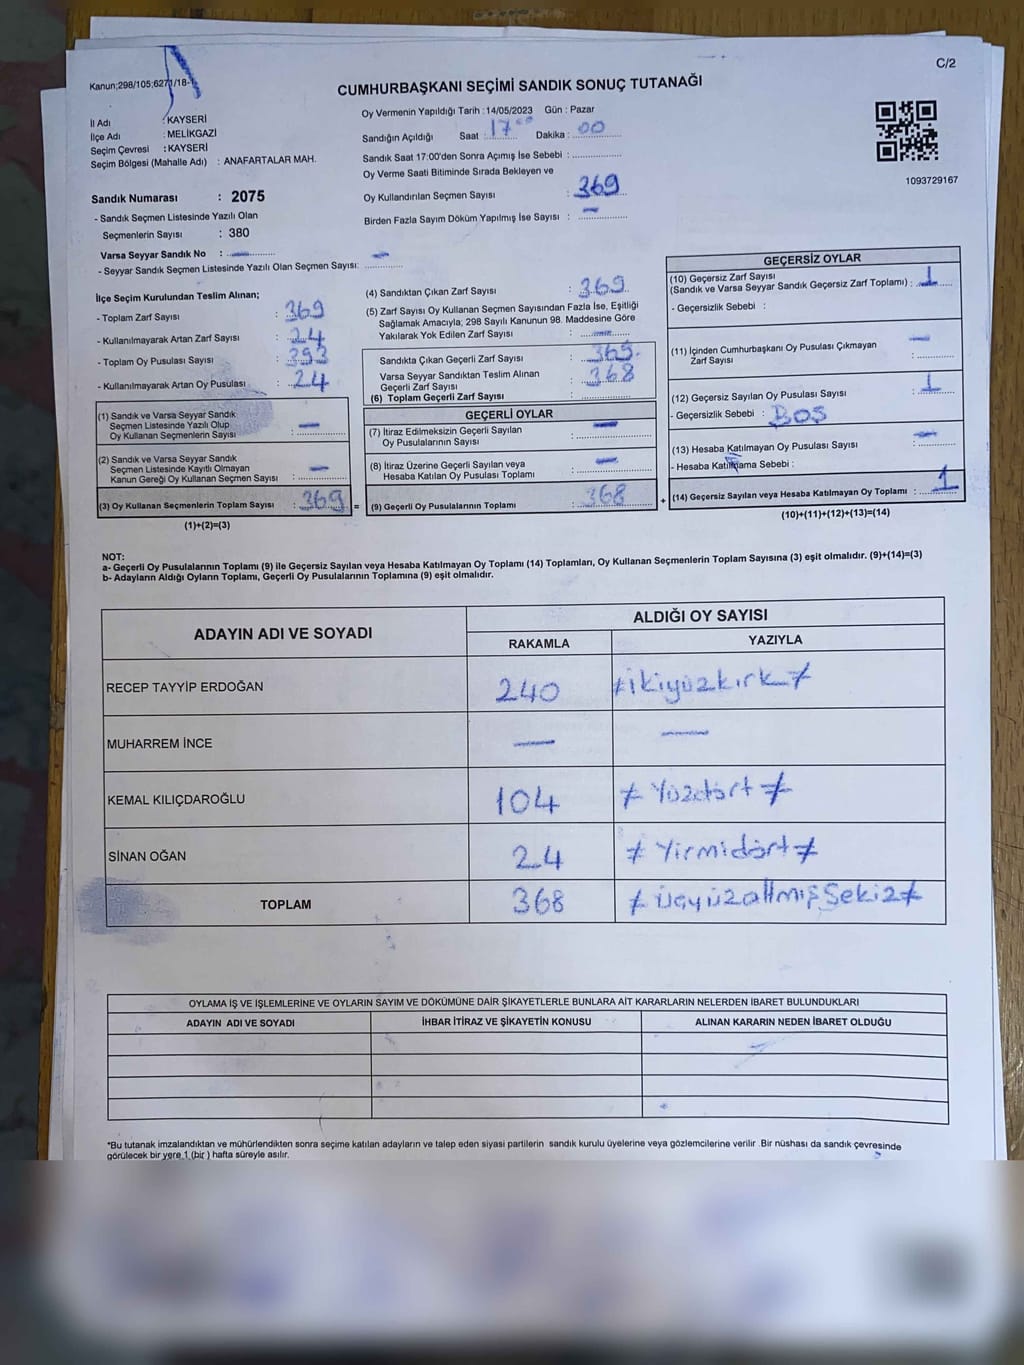 C/2
Kanun;298/105;6271/18-1
CUMHURBAŞKANI SEÇİMİ SANDIK SONUÇ TUTANAĞI
İl Adı : KAYSERİ
İlçe Adı : MELİKGAZİ
Seçim Çevresi : KAYSERİ
Seçim Bölgesi (Mahalle Adı) : ANAFARTALAR MAH.
Oy Vermenin Yapıldığı Tarih :14/05/2023 Gün : Pazar
Sandığın Açıldığı Saat : 17 Dakika : 00
Sandık Saat 17:00'den Sonra Açmış İse Sebebi :
Oy Verme Saati Bitiminde Sırada Bekleyen ve
Oy Kullandırılan Seçmen Sayısı : 369
Birden Fazla Sayım Döküm Yapılmış İse Sayısı : —
1093729167
Sandık Numarası : 2075
- Sandık Seçmen Listesinde Yazılı Olan
Seçmenlerin Sayısı : 380
Varsa Seyyar Sandık No : —
- Seyyar Sandık Seçmen Listesinde Yazılı Olan Seçmen Sayısı: —
İlçe Seçim Kurulundan Teslim Alınan;
- Toplam Zarf Sayısı : 369
- Kullanılmayarak Artan Zarf Sayısı : 24
- Toplam Oy Pusulası Sayısı : 393
- Kullanılmayarak Artan Oy Pusulası : 24
(1) Sandık ve Varsa Seyyar Sandık
Seçmen Listesinde Yazılı Olup
Oy Kullanan Seçmenlerin Sayısı : —
(2) Sandık ve Varsa Seyyar Sandık
Seçmen Listesinde Kayıtlı Olmayan
Kanun Gereği Oy Kullanan Seçmen Sayısı : —
(3) Oy Kullanan Seçmenlerin Toplam Sayısı : 369 =
(1)+(2)=(3)
(4) Sandıktan Çıkan Zarf Sayısı : 369
(5) Zarf Sayısı Oy Kullanan Seçmen Sayısından Fazla İse, Eşitliği
Sağlamak Amacıyla, 298 Sayılı Kanunun 98. Maddesine Göre
Yakılarak Yok Edilen Zarf Sayısı : —
Sandıkta Çıkan Geçerli Zarf Sayısı : 369
Varsa Seyyar Sandıktan Teslim Alınan
Geçerli Zarf Sayısı : 368
(6) Toplam Geçerli Zarf Sayısı :
GEÇERLİ OYLAR
(7) İtiraz Edilmeksizin Geçerli Sayılan
Oy Pusulalarının Sayısı : —
(8) İtiraz Üzerine Geçerli Sayılan veya
Hesaba Katılan Oy Pusulası Toplamı : —
(9) Geçerli Oy Pusulalarının Toplamı : 368 +
GEÇERSİZ OYLAR
(10) Geçersiz Zarf Sayısı
(Sandık ve Varsa Seyyar Sandık Geçersiz Zarf Toplamı) : 1
- Geçersizlik Sebebi :
(11) İçinden Cumhurbaşkanı Oy Pusulası Çıkmayan
Zarf Sayısı : —
(12) Geçersiz Sayılan Oy Pusulası Sayısı : 1
- Geçersizlik Sebebi : BOŞ
(13) Hesaba Katılmayan Oy Pusulası Sayısı : —
- Hesaba Katılmama Sebebi :
(14) Geçersiz Sayılan veya Hesaba Katılmayan Oy Toplamı : 1
(10)+(11)+(12)+(13)=(14)
NOT:
a- Geçerli Oy Pusulalarının Toplamı (9) ile Geçersiz Sayılan veya Hesaba Katılmayan Oy Toplamı (14) Toplamları, Oy Kullanan Seçmenlerin Toplam Sayısına (3) eşit olmalıdır. (9)+(14)=(3)
b- Adayların Aldığı Oyların Toplamı, Geçerli Oy Pusulalarının Toplamına (9) eşit olmalıdır.
ADAYIN ADI VE SOYADI ALDIĞI OY SAYISI
RAKAMLA YAZIYLA
RECEP TAYYİP ERDOĞAN 240 ≠ikiyüzkırk≠
MUHARREM İNCE — —
KEMAL KILIÇDAROĞLU 104 ≠ Yüzdört ≠
SİNAN OĞAN 24 ≠ Yirmidört ≠
TOPLAM 368 ≠ Üçyüzaltmışsekiz≠
OYLAMA İŞ VE İŞLEMLERİNE VE OYLARIN SAYIM VE DÖKÜMÜNE DAİR ŞİKAYETLERLE BUNLARA AİT KARARLARIN NELERDEN İBARET BULUNDUKLARI
ADAYIN ADI VE SOYADI İHBAR İTİRAZ VE ŞİKAYETİN KONUSU ALINAN KARARIN NEDEN İBARET OLDUĞU
*Bu tutanak imzalandıktan ve mühürlendikten sonra seçime katılan adayların ve talep eden siyasi partilerin sandık kurulu üyelerine veya gözlemcilerine verilir .Bir nüshası da sandık çevresinde
görülecek bir yere 1 (bir ) hafta süreyle asılır.